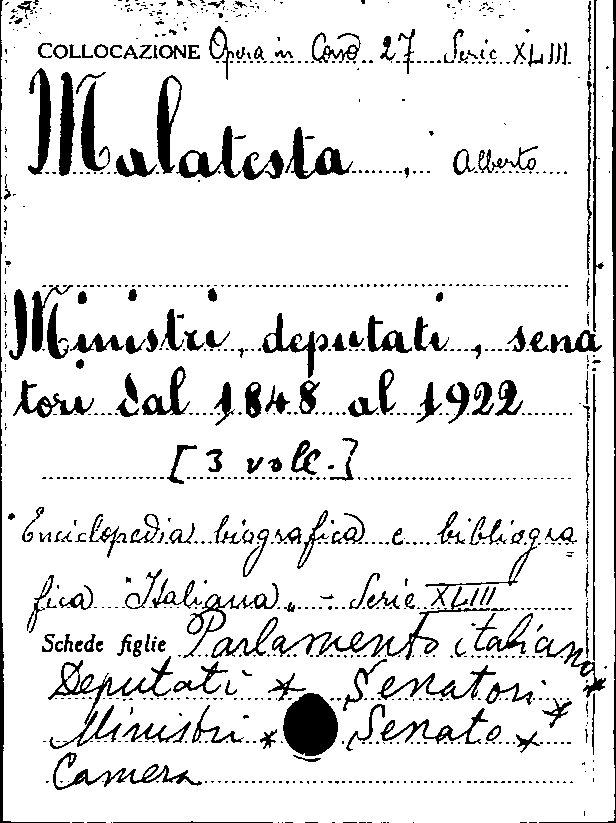 COLLOCAZIONE Opera in Cons. 27 Serie XLIII
Malatesta, Alberto
Ministri, deputati, sena
tori dal 1848 al 1922
[3 voll.]
"Enciclopedia biografica e bibliogra=
fica "Italiana" - Serie XLIII
Schede figlie Parlamento italiano *
Deputati * Senatori *
Ministri * Senato *
Camera